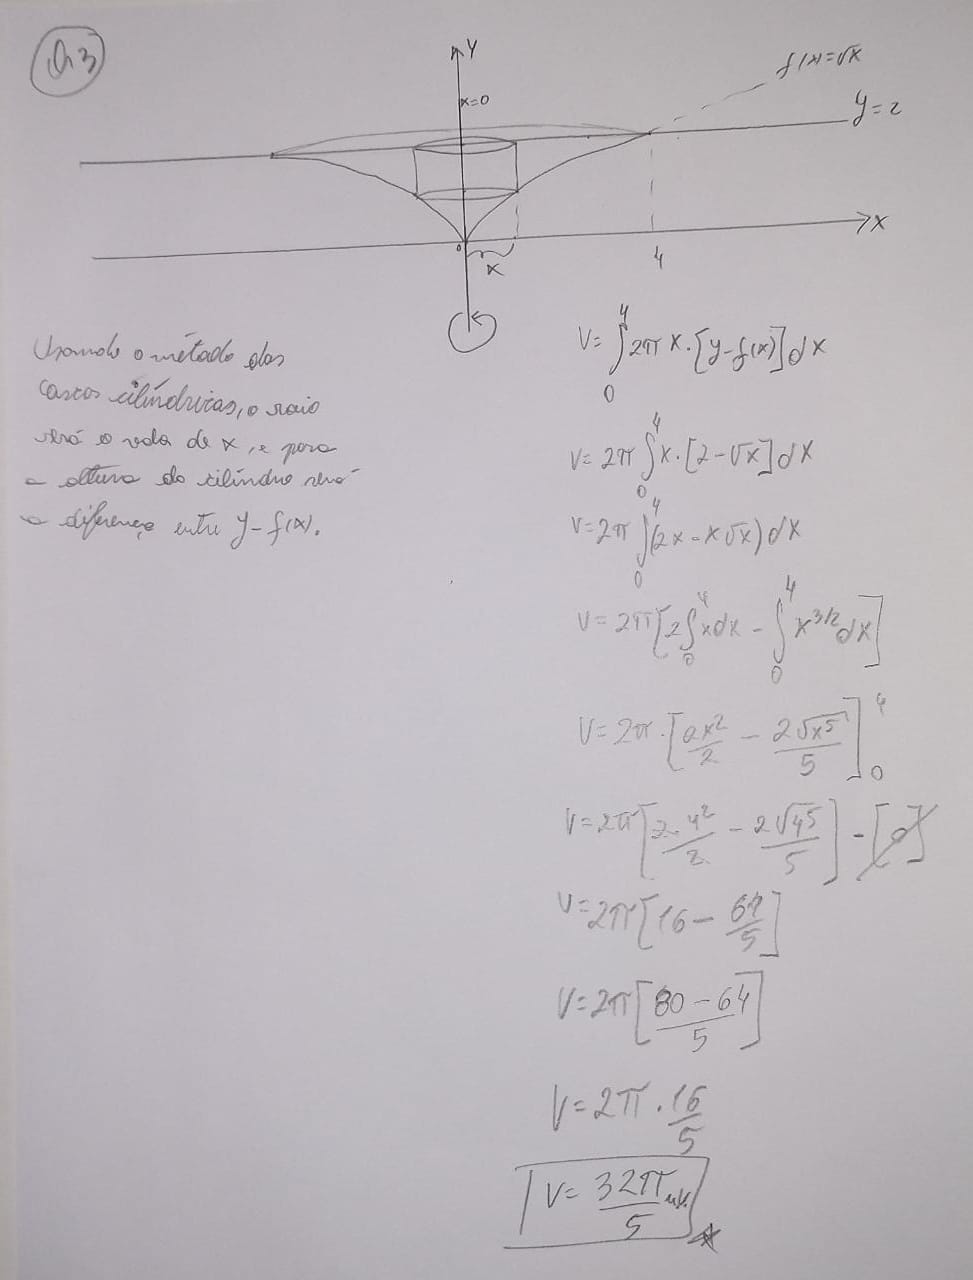 Q3
Y
f(x)=√x
x=0
y=2
X
0
x
4
Usando o método das
cascas cilíndricas, o raio
será o valor de x, e para
a altura do cilindro será
a diferença entre y-f(x).
V= ∫₀⁴ 2π x·[y-f(x)]dx
V= 2π ∫₀⁴ x·[2-√x]dx
V=2π ∫₀⁴ (2x-x√x)dx
V= 2π[2∫₀⁴ xdx - ∫₀⁴ x^3/2 dx]
V= 2π·[2x²/2 - 2√x⁵/5]₀⁴
V=2π[2.4²/2 - 2√4⁵/5] - [0]
V=2π[16 - 64/5]
V=2π[80-64/5]
V=2π . 16/5
V= 32π/5 u.v.